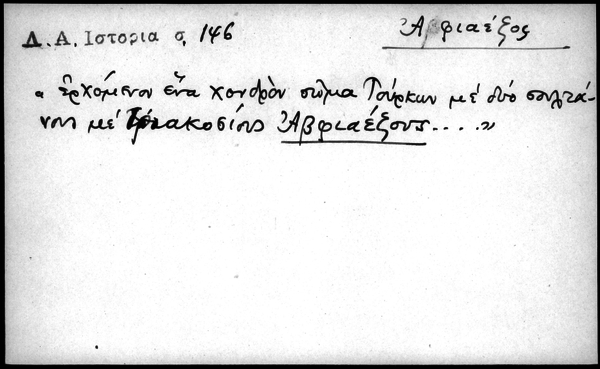 Δ.Α. Ιστορια σ. 146
Ἀβφιαέξος
« ἐρχόμενον ἕνα χονδρὸν σῶμα Τούρκων μέ δύο σουλτά-
νους μέ Τριακοσίους Ἀβφιαέξους.... »